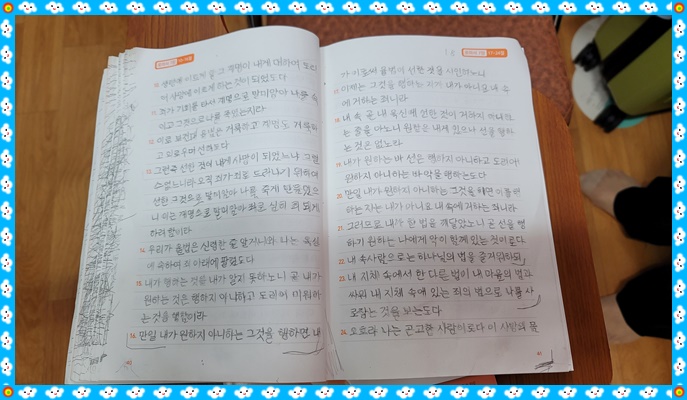 로마서 7장 10-16절
10 생명에 이르게 할 그 계명이 내게 대하여 도리
어 사망에 이르게 하는 것이 되었도다
11 죄가 기회를 타서 계명으로 말미암아 나를 속
이고 그것으로 나를 죽였는지라
12 이로 보건대 율법은 거룩하고 계명도 거룩하
고 의로우며 선하도다
13 그런즉 선한 것이 내게 사망이 되었느냐 그럴
수 없느니라 오직 죄가 죄로 드러나기 위하여
선한 그것으로 말미암아 나를 죽게 만들었으
니 이는 계명으로 말미암아 죄로 심히 죄 되게
하려 함이라
14 우리가 율법은 신령한 줄 알거니와 나는 육신
에 속하여 죄 아래에 팔렸도다
15 내가 행하는 것을 내가 알지 못하노니 곧 내가
원하는 것은 행하지 아니하고 도리어 미워하
는 것을 행함이라
16 만일 내가 원하지 아니하는 그것을 행하면 내
60
로마서 7장 17-24절
가 이로써 율법이 선한 것을 시인하노니
17 이제는 그것을 행하는 자가 내가 아니요 내 속
에 거하는 죄니라
18 내 속 곧 내 육신에 선한 것이 거하지 아니하
는 줄을 아노니 원함은 내게 있으나 선을 행하
는 것은 없노라
19 내가 원하는 바 선은 행하지 아니하고 도리어
원하지 아니하는 바 악을 행하는도다
20 만일 내가 원하지 아니하는 그것을 하면 이를 행
하는 자는 내가 아니요 내 속에 거하는 죄니라
21 그러므로 내가 한 법을 깨달았노니 곧 선을 행
하기 원하는 나에게 악이 함께 있는 것이로다
22 내 속사람으로는 하나님의 법을 즐거워하되
23 내 지체 속에서 한 다른 법이 내 마음의 법과
싸워 내 지체 속에 있는 죄의 법으로 나를 사
로잡는 것을 보는도다
24 오호라 나는 곤고한 사람이로다 이 사망의 몸
61